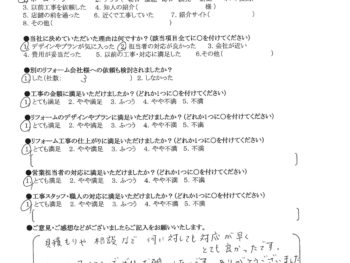 3. 以前工事を依頼した　4. 知人の紹介（　　　　　　様）
5. 店舗の前を通った　6. 近くで工事していた　7. 紹介サイト（　　　　）
8. その他（　　　　　　　　）
●当社に決めていただいた理由は何ですか？（該当項目全てに○を付けてください）
1. デザインやプランが気に入った　2. 担当者の対応が良かった　3. 会社が近い
4. 費用が妥当だった　5. 以前の工事に満足した　6. その他（　　　　　　）
●別のリフォーム会社様への依頼も検討されましたか？
1. した（社数：　3　）　2. しなかった
●工事の金額に満足いただけましたか？（どれか1つに○を付けてください）
1. とても満足　2. やや満足　3. ふつう　4. やや不満　5. 不満
●リフォームのデザインやプランに満足いただけましたか？（どれか1つに○を付けてください）
1. とても満足　2. やや満足　3. ふつう　4. やや不満　5. 不満
●リフォーム工事の仕上がりに満足いただけましたか？（どれか1つに○を付けてください）
1. とても満足　2. やや満足　3. ふつう　4. やや不満　5. 不満
●営業担当者の対応に満足いただけましたか？（どれか1つに○を付けてください）
1. とても満足　2. やや満足　3. ふつう　4. やや不満　5. 不満
●工事スタッフ・職人の対応に満足いただけましたか？（どれか1つに○を付けてください）
1. とても満足　2. やや満足　3. ふつう　4. やや不満　5. 不満
●ご意見・ご感想などがございましたらご記入をお願いいたします。
見積もりや　相談など　何に対しても　対応が早く
とても良かったです。
ありがとうございました